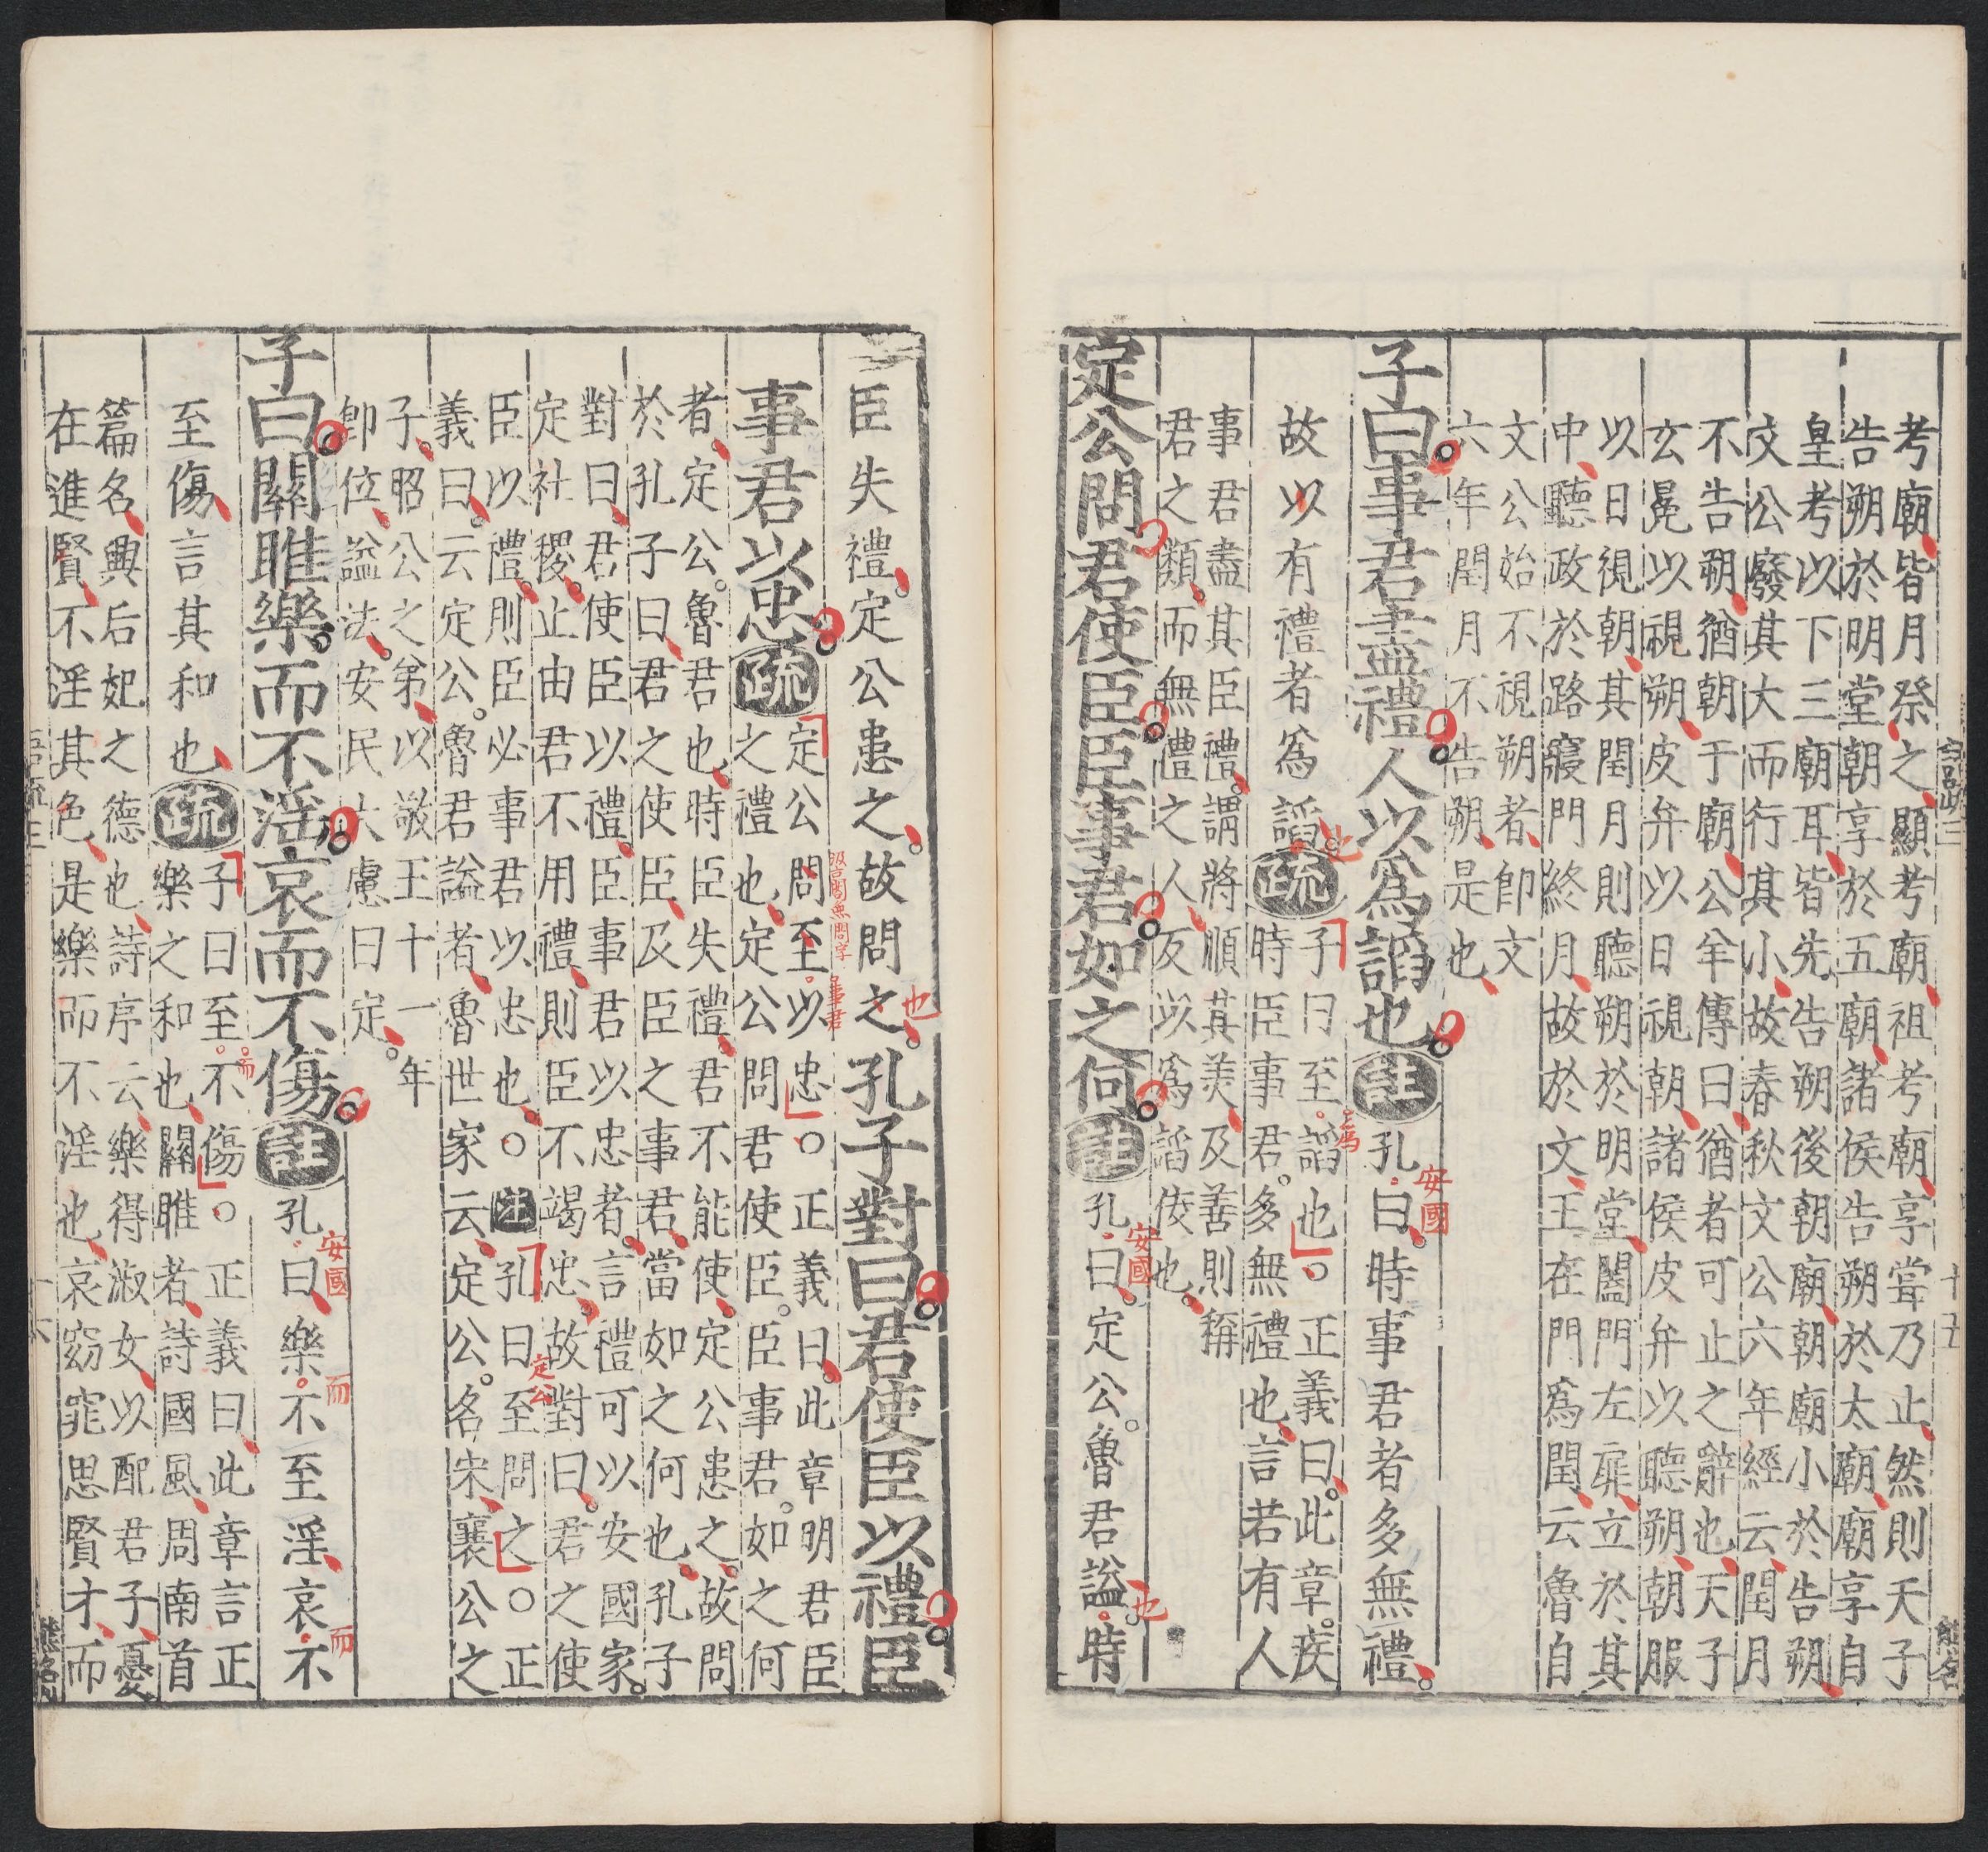 考廟皆月祭之顯考廟祖考廟享甞乃止然則天子
告朔於明堂朝享於五廟諸侯告朔於太廟廟享自
皇考以下三廟耳皆先告朔後朝廟朝廟小於告朔
文公廢其大而行其小故春秋文公六年經云閏月
不告朔猶朝于廟公羊傳曰猶者可止之辭也天子
玄冕以視朔皮弁以日視朝諸侯皮弁以聽朔朝服
以日視朝其閏月則聽朔於明堂闔門左扉立於其
中聽政於路寢門終月故於文王在門爲閏云魯自
文公始不視朔者卽文
六年閏月不告朔是也
子曰事君盡禮人以爲諂也註孔曰時事君者多無禮
安國
故以有禮者爲諂疏
也
子曰至諂也○正義曰此章疾
之爲
時臣事君多無禮也言若有人
事君盡其臣禮謂將順其美及善則稱
君之類而無禮之人反以爲諂佞也
定公問君使臣臣事君如之何註孔曰定公魯君謚時
安國
也
臣失禮定公患之故問之孔子對曰君使臣以禮臣
也
事君以忠疏
定公問至以忠○正義曰此章明君臣
之禮也定公問君使臣臣事君如之何
者定公魯君也時臣失禮君不能使定公患之故問
於孔子曰君之使臣及臣之事君當如之何也孔子
對曰君使臣以禮臣事君以忠者言禮可以安國家
定社稷止由君不用禮則臣不竭忠故對曰君之使
臣以禮則臣必事君以忠也○注孔曰至問之○正
定公
義曰云定公魯君謚者魯世家云定公名宋襄公之
子昭公之弟以敬王十一年
卽位謚法安民大慮曰定
子曰關雎樂而不淫哀而不傷註孔曰樂不至淫哀不
安國
而
而
至傷言其和也疏
子曰至不傷○正義曰此章言正
而
樂之和也關雎者詩國風周南首
篇名興后妃之德也詩序云樂得淑女以配君子憂
在進賢不淫其色是樂而不淫也哀窈窕思賢才而